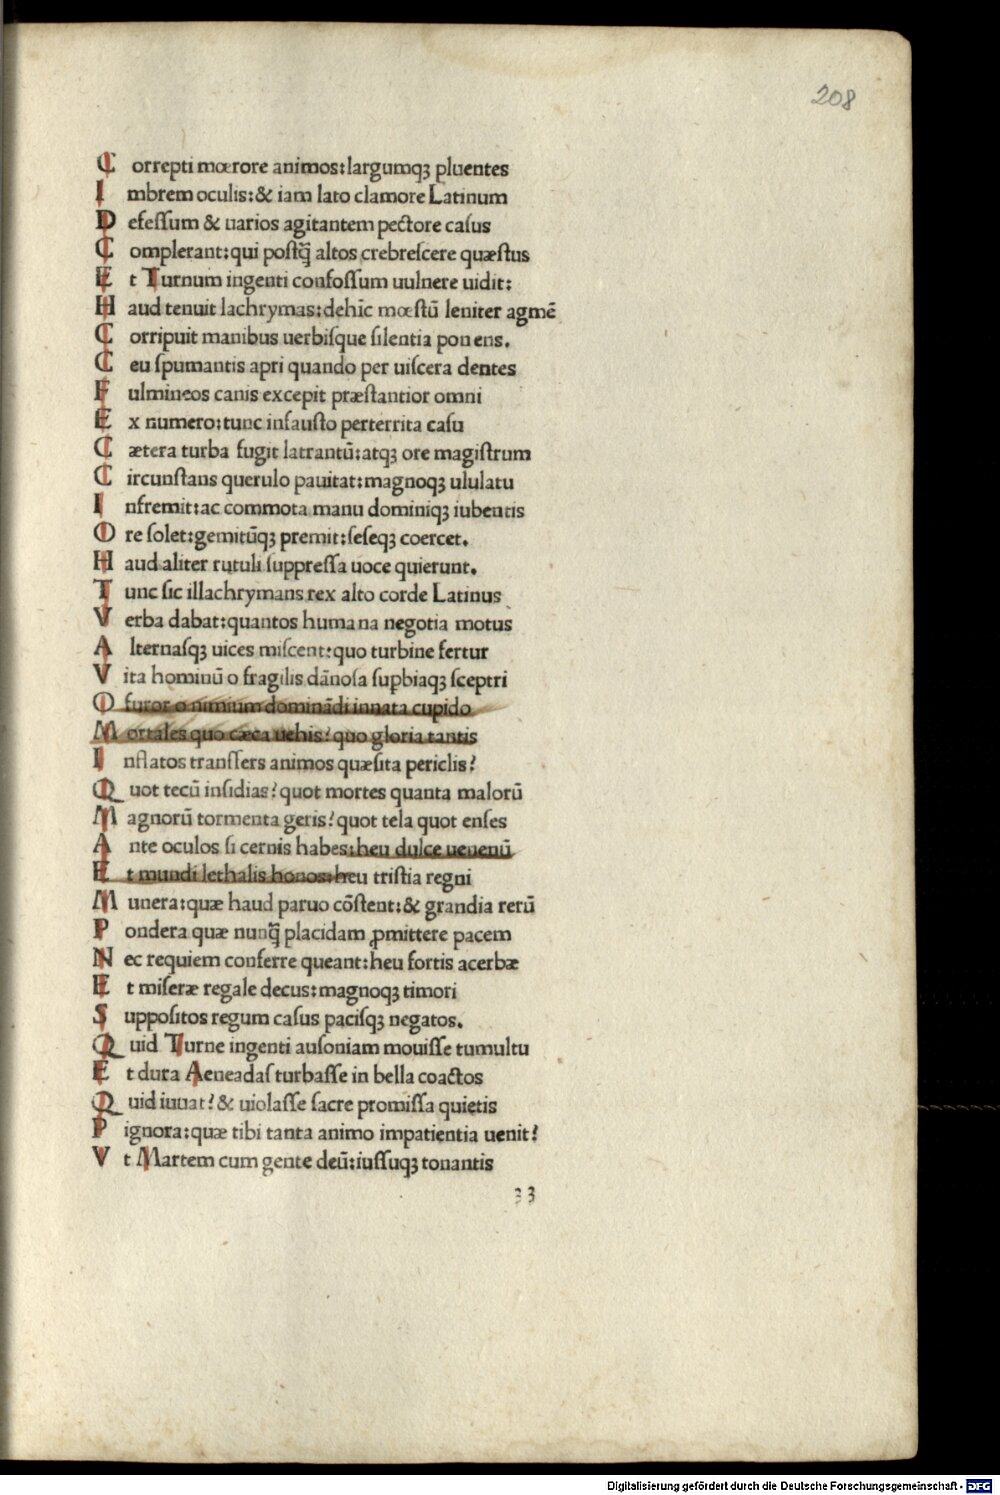 208
Correpti mœrore animos:largumqꝫ pluentes
Imbrem oculis:& iam lato clamore Latinum
Defeſſum & uarios agitantem pectore caſus
Complerant:qui poſtq̃ altos crebreſcere quæſtus
Et Turnum ingenti confoſſum uulnere uidit:
Haud tenuit lachrymas:dehīc mœſtū leniter agmē
Corripuit manibus uerbiſque ſilentia ponens.
Ceu ſpumantis apri quando per uiſcera dentes
Fulmineos canis excepit præſtantior omni
Ex numero:tunc infauſto perterrita caſu
Cætera turba fugit latrantū:atqꝫ ore magiſtrum
Circunſtans querulo pauitat:magnoqꝫ ululatu
Infremit:ac commota manu dominiqꝫ iubentis
Ore ſolet:gemitūqꝫ premit:ſeſeqꝫ coercet.
Haud aliter rutuli ſuppreſſa uoce quierunt.
Tunc ſic illachrymans rex alto corde Latinus
Verba dabat:quantos humana negotia motus
Alternaſqꝫ uices miſcent:quo turbine fertur
Vita hominū o fragilis dānoſa ſupbiaqꝫ ſceptri
O furor o nimium dominādi innata cupido
Mortales quo cæca uehis?quo gloria tantis
Inflatos tranſfers animos quæſita periclis?
Quot tecū inſidias?quot mortes quanta malorū
Magnorū tormenta geris?quot tela quot enſes
Ante oculos ſi cernis habes:heu dulce uenenū
Et mundi lethalis honos:heu triſtia regni
Munera:quæ haud paruo cōſtent:& grandia rerū
Pondera quæ nunq̃ placidam ꝓmittere pacem
Nec requiem conferre queant:heu fortis acerbæ
Et miſeræ regale decus:magnoqꝫ timori
Suppoſitos regum caſus paciſqꝫ negatos.
Quid Turne ingenti auſoniam mouiſſe tumultu
Et dura Aeneadaſ turbaſſe in bella coactos
Quid iuuat?& uiolaſſe ſacre promiſſa quietis
Pignora:quæ tibi tanta animo impatientia uenit?
Vt Martem cum gente deū:iuſſuqꝫ tonantis
33
Digitalisierung gefördert durch die Deutsche Forschungsgemeinschaft - DFG